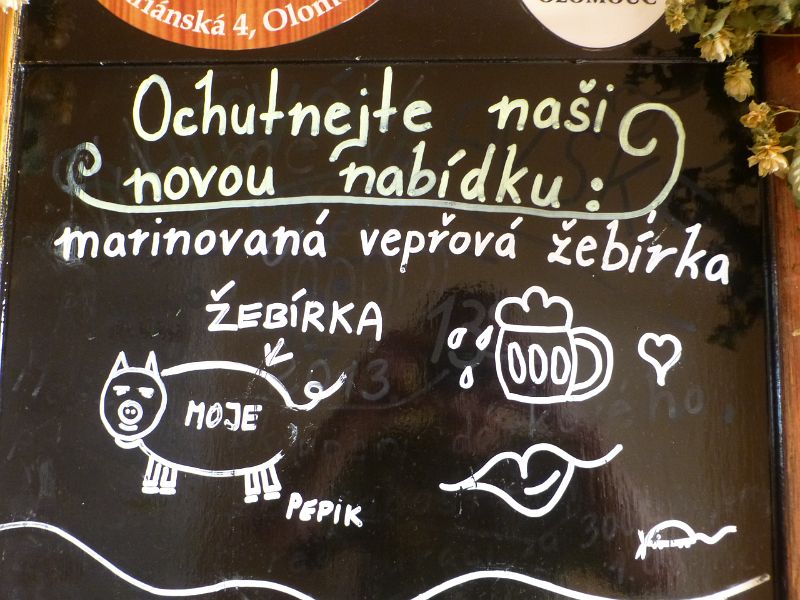 4, Olom
OLOMOUC
Ochutnejte naši
novou nabídku:
marinovaná vepřová žebírka
ŽEBÍRKA
MOJE
PEPIK
2013
13